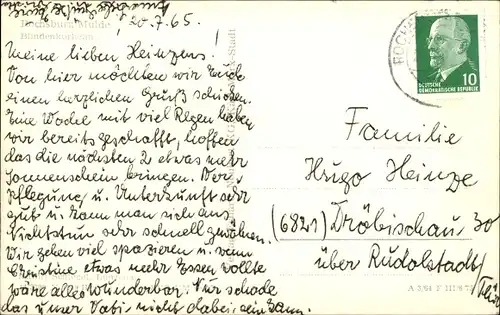 Rochsburg/Mulde
Blindenkurheim
20.7.65.
Meine lieben Heinzens!
Von hier möchten wir Euch
einen herzlichen Gruß schicken.
Eine Woche mit viel Regen haben
wir bereits geschafft, hoffen
das die nächsten 2 etwas mehr
Sonnenschein bringen. Ver-
pflegung u. Unterkunft sehr
gut u. kann man sich ans
Nichtstun sehr schnell gewöhnen.
Wir gehen viel spazieren u. wenn
Christine etwas mehr Essen wollte
wäre alles wunderbar. Nur schade
das unser Vati nicht dabei sein kann.
ROCHS
10
DEUTSCHE
DEMOKRATISCHE REPUBLIK
Familie
Hugo Heinze
(6821) Dröbischau, 30
über Rudolstadt/
-Stadt